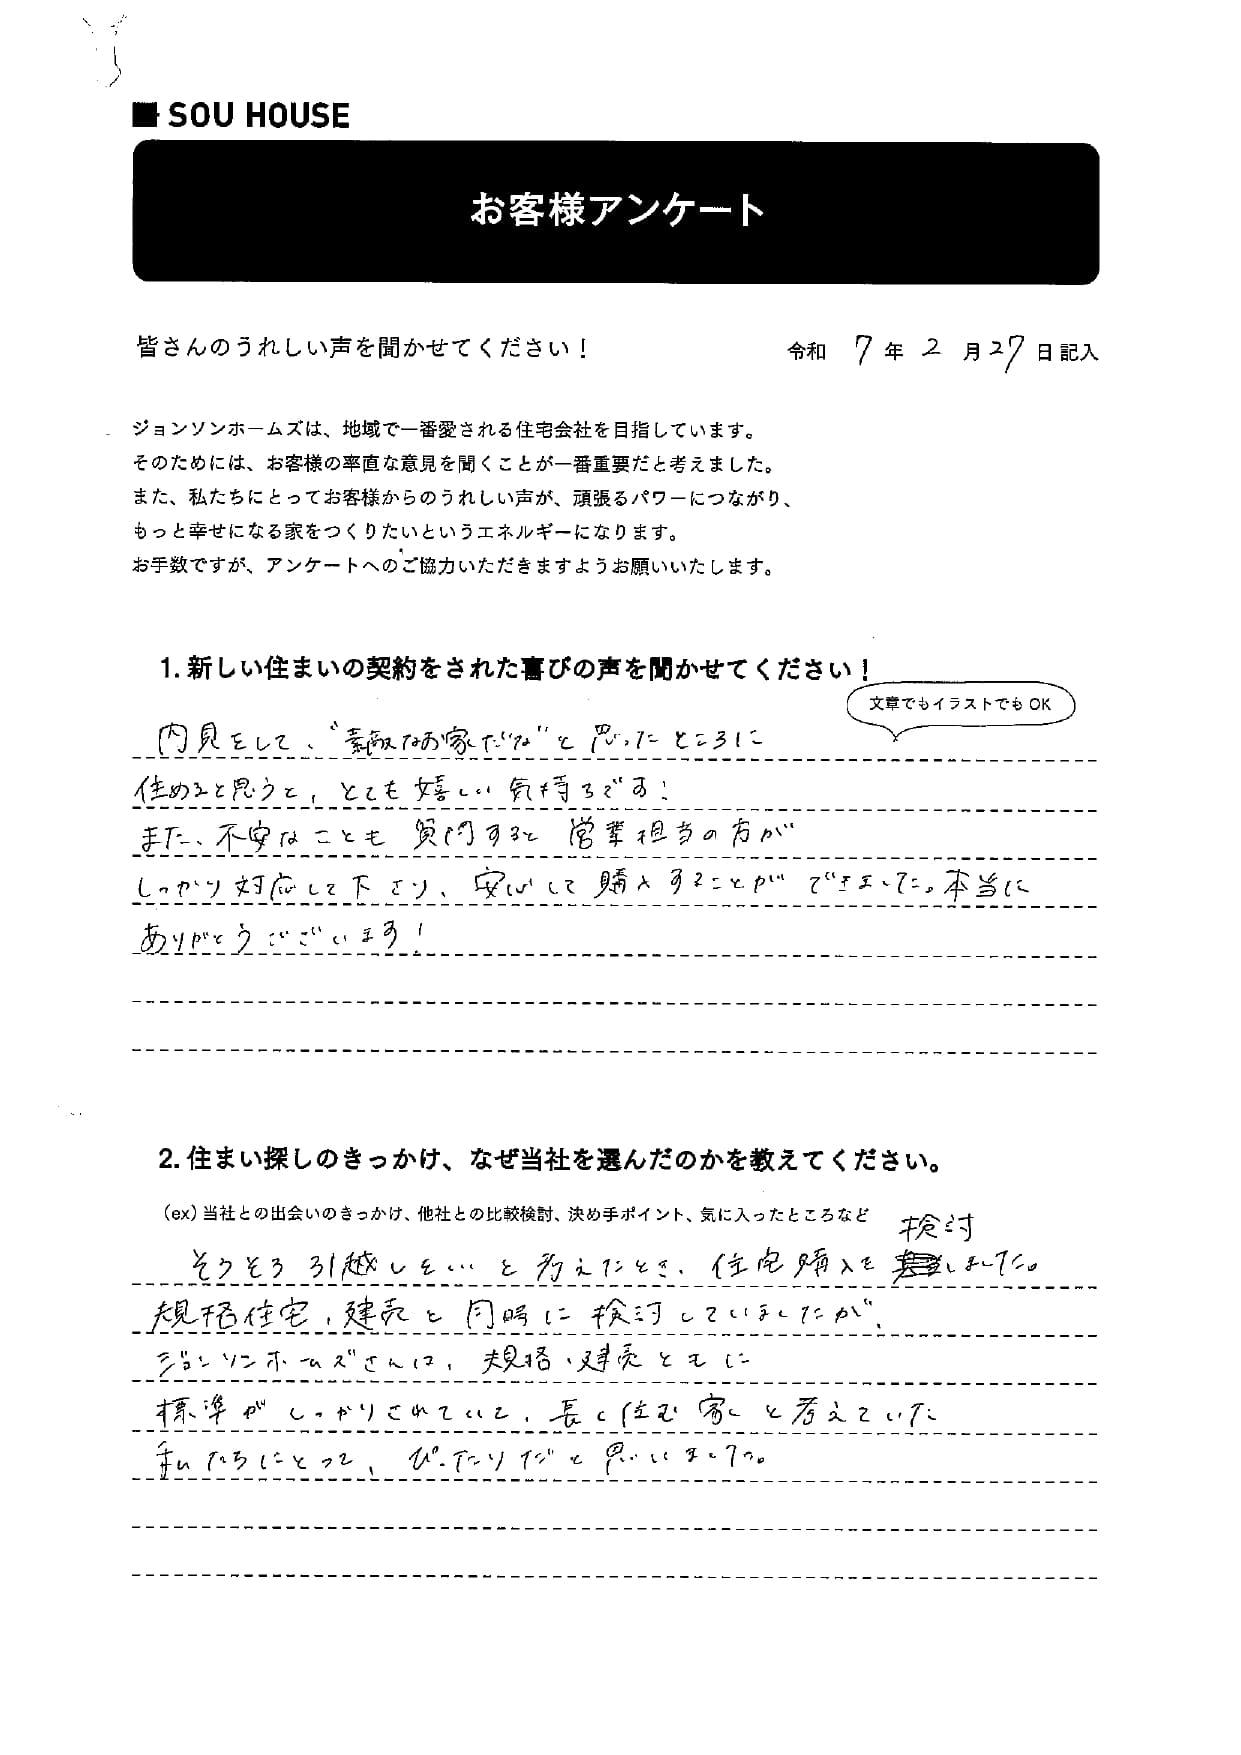 SOU HOUSE
お客様アンケート
皆さんのうれしい声を聞かせてください！
令和 7年 2月27日記入
ジョンソンホームズは、地域で一番愛される住宅会社を目指しています。
そのためには、お客様の率直な意見を聞くことが一番重要だと考えました。
また、私たちにとってお客様からのうれしい声が、頑張るパワーにつながり、
もっと幸せになる家をつくりたいというエネルギーになります。
お手数ですが、アンケートへのご協力いただきますようお願いいたします。
1. 新しい住まいの契約をされた喜びの声を聞かせてください！
文章でもイラストでも OK
内見をして、"素敵なお家だな"と思ったところに
住めると思うと、とても嬉しい気持ちです！
また、不安なことも質問すると営業担当の方が
しっかり対応して下さり、安心して購入することができました。本当に
ありがとうございます！
2. 住まい探しのきっかけ、なぜ当社を選んだのかを教えてください。
（ex）当社との出会いのきっかけ、他社との比較検討、決め手ポイント、気に入ったところなど
検討
そろそろ引越しをしたいと考えたとき、住宅購入をしました。
規格住宅、建売と同時に検討していましたが、
ジョンソンホームズさんは、規格・建売ともに
標準がしっかりされていて、長く住む家と考えていた
私たちにとって、ぴったりだと思いました。